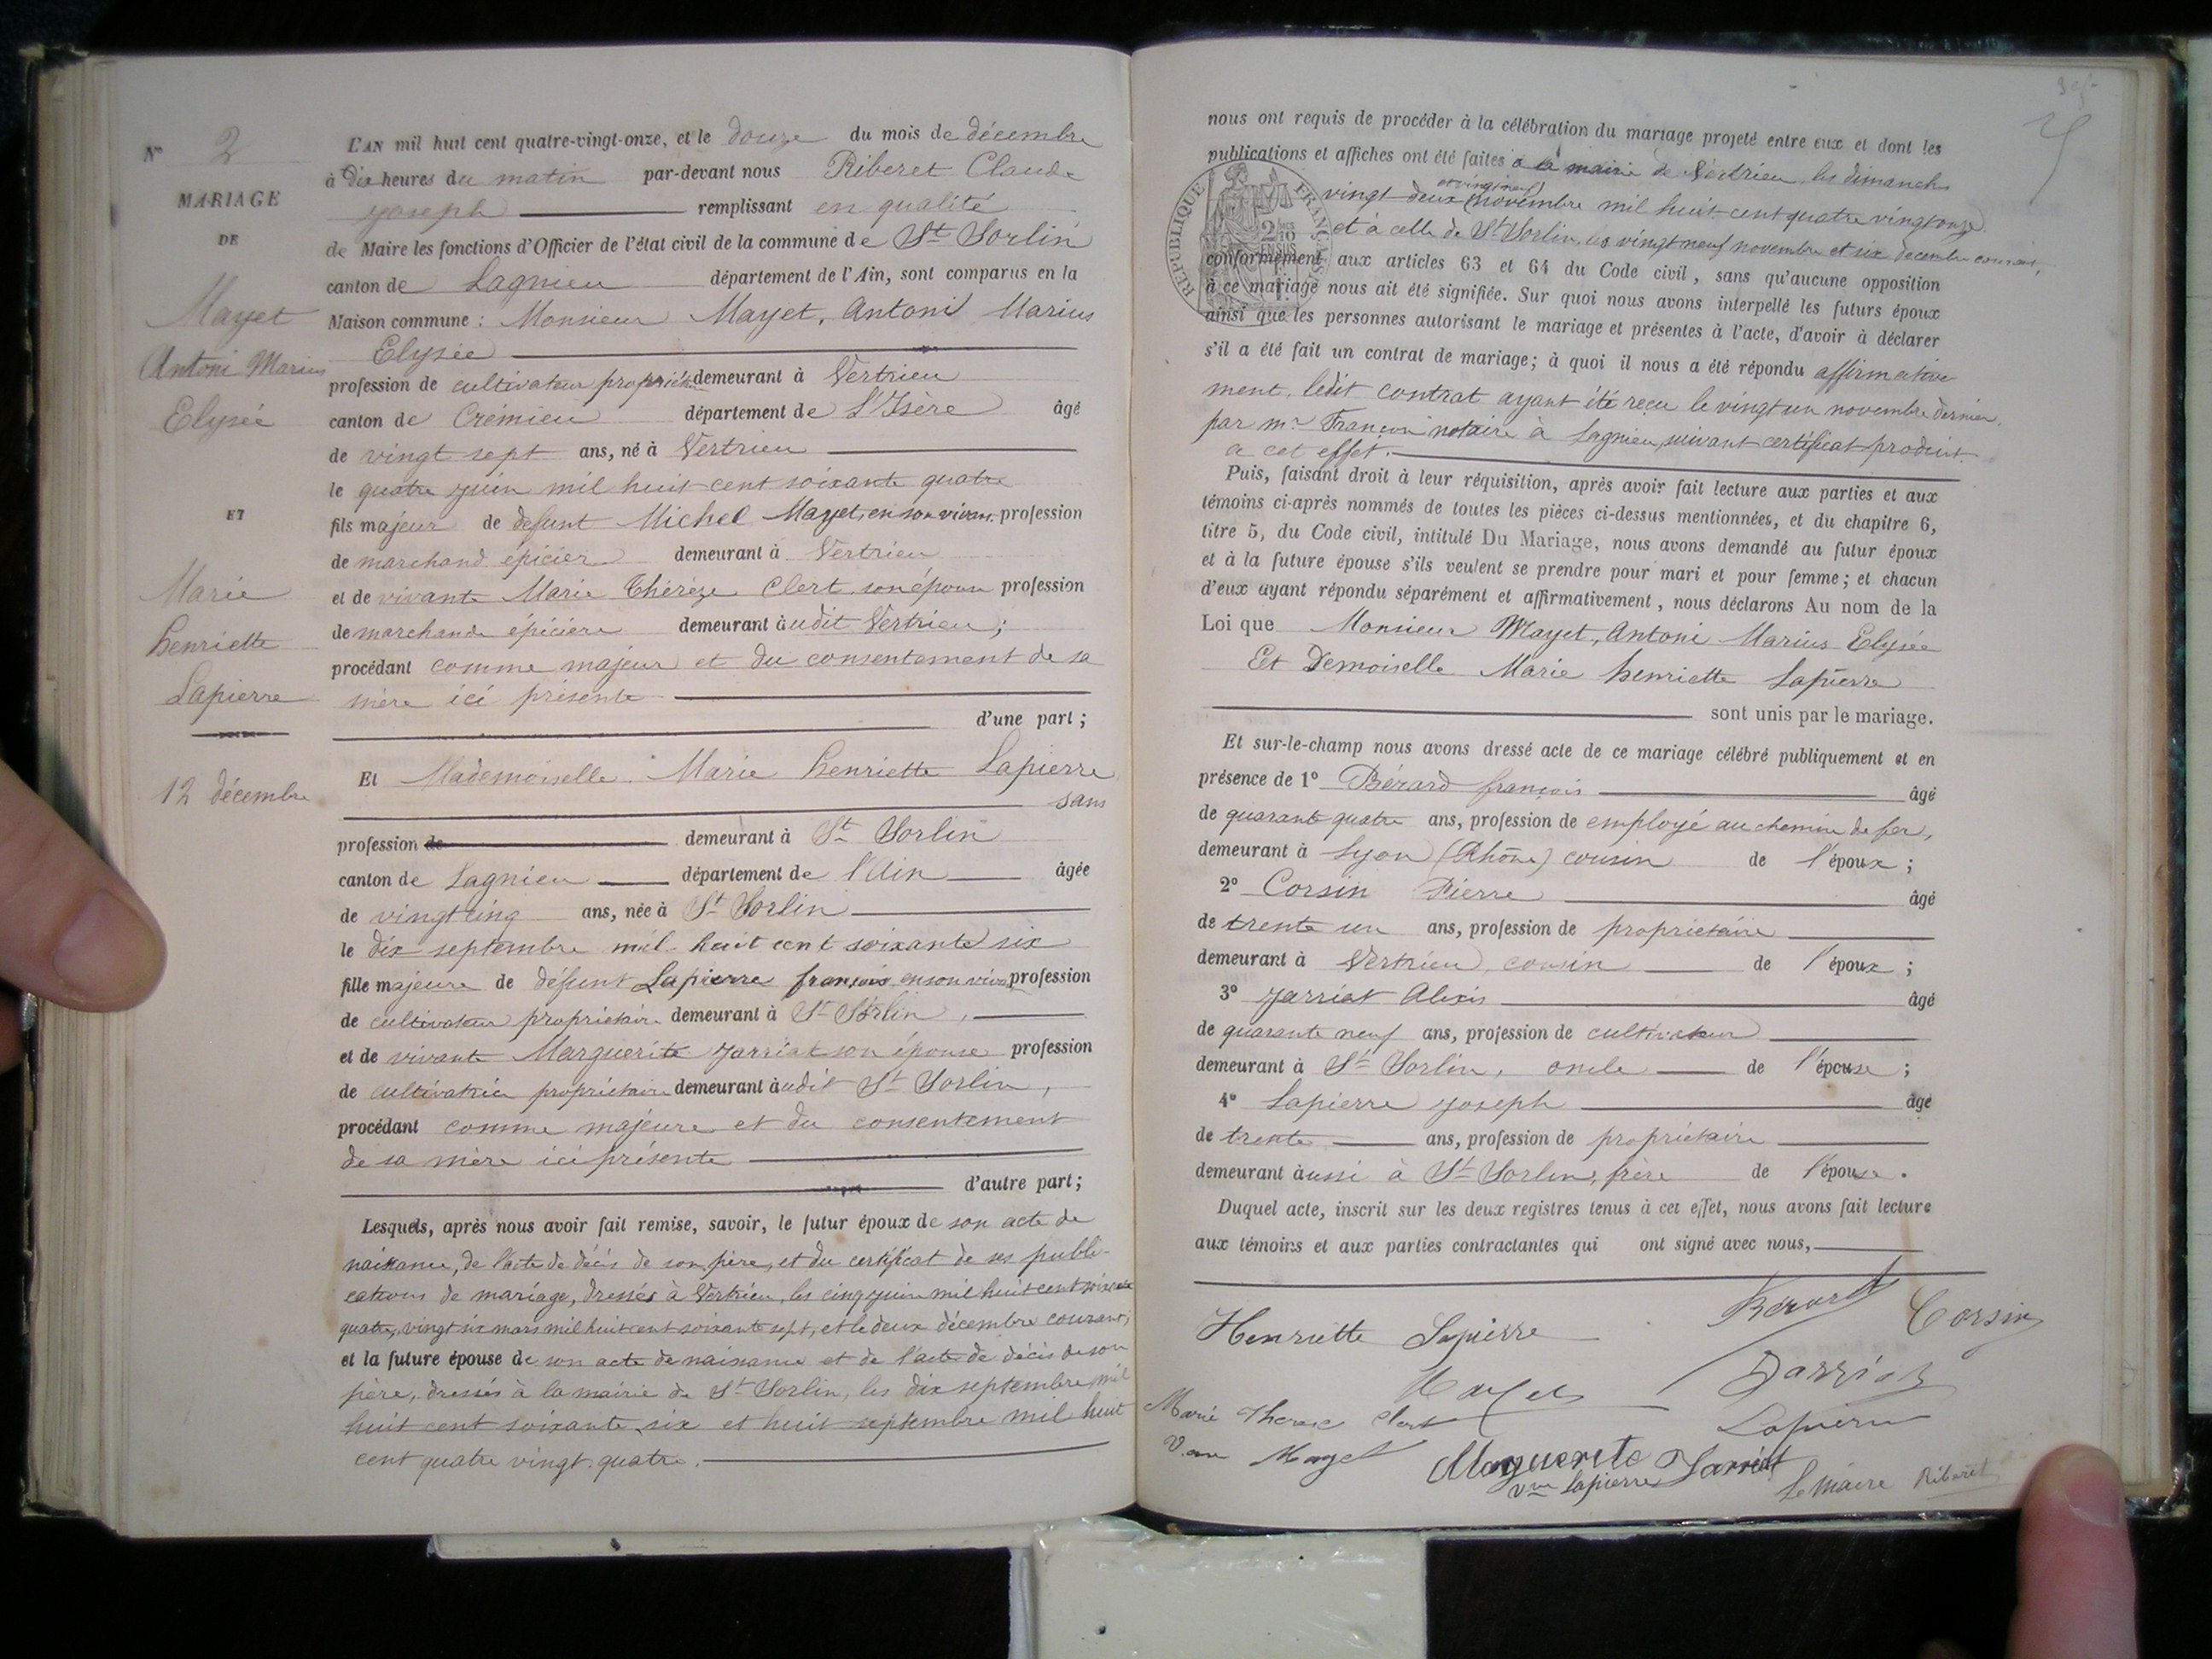 N° 2
MARIAGE
DE
Mayet
Antoni Marius
Elysée
ET
Marie
henriette
Lapierre
12 décembre
L'AN mil huit cent quatre-vingt-onze, et le douze du mois de décembre
à dix heures du matin par-devant nous Riberet Claude
Joseph remplissant en qualité
de Maire les fonctions d'Officier de l'état civil de la commune de St Sorlin
canton de Lagnieu département de l'Ain, sont comparus en la
Maison commune : Monsieur Mayet, Antoni Marius
Elysée
profession de cultivateur propriétaire demeurant à Vertrieu
canton de Crémieu département de L'Isère âgé
de vingt sept ans, né à Vertrieu
le quatre juin mil huit cent soixante quatre
fils majeur de defunt Michel Mayet, en son vivant profession
de marchand épicier demeurant à Vertrieu
et de vivante Marie Thérèze Clert son épouse profession
de marchande épicière demeurant àudit Vertrieu ;
procédant comme majeur et du consentement de sa
mère ici présente
d'une part ;
Et Mademoiselle Marie henriette Lapierre
sans
profession de demeurant à St Sorlin
canton de Lagnieu département de l'Ain âgée
de vingt cinq ans, née à St Sorlin
le dix septembre mil huit cent soixante six
fille majeure de défunt Lapierre françois en son vivant profession
de cultivateur propriétaire demeurant à St Sorlin,
et de vivante Marguerite Jarriat son épouse profession
de cultivatrice propriétaire demeurant àudit St Sorlin,
procédant comme majeure et du consentement
de sa mère ici présente
d'autre part ;
Lesquels, après nous avoir fait remise, savoir, le futur époux de son acte de
naissance, de l'acte de décès de son père, et du certificat de ses publi-
cations de mariage, dressés à Vertrieu, les cinq juin mil huit cent soixante
quatre, vingt six mars mil huit cent soixante sept, et le deux décembre courant,
et la future épouse de son acte de naissance et de l'acte de décès de son
père, dressés à la mairie de St Sorlin, les dix septembre mil
huit cent soixante six et huit septembre mil huit
cent quatre vingt quatre.
nous ont requis de procéder à la célébration du mariage projeté entre eux et dont les
publications et affiches ont été faites à la mairie de Vertrieu les dimanches
vingt deux et vingt neuf novembre mil huit cent quatre vingt onze
et à celle de St Sorlin, les vingt neuf novembre et six decembre courant,
conformément aux articles 63 et 64 du Code civil, sans qu'aucune opposition
à ce mariage nous ait été signifiée. Sur quoi nous avons interpellé les futurs époux
ainsi que les personnes autorisant le mariage et présentes à l'acte, d'avoir à déclarer
s'il a été fait un contrat de mariage ; à quoi il nous a été répondu affirmative
ment, ledit contrat ayant été reçu le vingt un novembre dernier
par mr Françon notaire à Lagnieu, suivant certificat produit
a cet effet.
RÉPUBLIQUE FRANÇAISE
Puis, faisant droit à leur réquisition, après avoir fait lecture aux parties et aux
témoins ci-après nommés de toutes les pièces ci-dessus mentionnées, et du chapitre 6,
titre 5, du Code civil, intitulé Du Mariage, nous avons demandé au futur époux
et à la future épouse s'ils veulent se prendre pour mari et pour femme ; et chacun
d'eux ayant répondu séparément et affirmativement, nous déclarons Au nom de la
Loi que Monsieur Mayet, Antoni Marius Elysée
Et Demoiselle Marie henriette Lapierre
sont unis par le mariage.
Et sur-le-champ nous avons dressé acte de ce mariage célébré publiquement et en
présence de 1° Bérard françois âgé
de quarante quatre ans, profession de employé au chemin de fer,
demeurant à Lyon (Rhône) cousin de l'époux ;
2° Corsin Pierre âgé
de trente un ans, profession de propriétaire
demeurant à Vertrieu, cousin de l'époux ;
3° Jarriat Alexis âgé
de quarante neuf ans, profession de cultivateur
demeurant à St Sorlin, oncle de l'épouse ;
4° Lapierre Joseph âgé
de trente ans, profession de propriétaire
demeurant àussi à St Sorlin, frère de l'épouse.
Duquel acte, inscrit sur les deux registres tenus à cet effet, nous avons fait lecture
aux témoins et aux parties contractantes qui ont signé avec nous,
Henriette Lapierre
Bérard
Corsin
Mayet
Jarriat
Marie Therese Clert
Lapierre
Veuve Mayet
Marguerite Jarriat
vve Lapierre
Le Maire Riberet